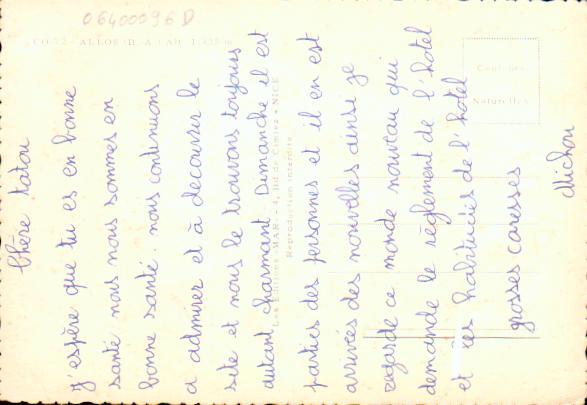 06400096 D
Couleurs
Naturelles
Les Editions "MAR" - 4, Bd de Cimiez - NICE
Reproduction interdite
Chère Tatou
J'espère que tu es en bonne
santé nous nous sommes en
bonne santé. nous continuons
a admirer et à decouvrir le
site et nous le trouvons toujours
autant charmant Dimanche il est
parties des personnes et il en est
arrivées des nouvelles ainsi je
regarde ce monde nouveau qui
demande le règlement de l'hotel
et les habitudes de l'hotel
grosses caresses
Michou